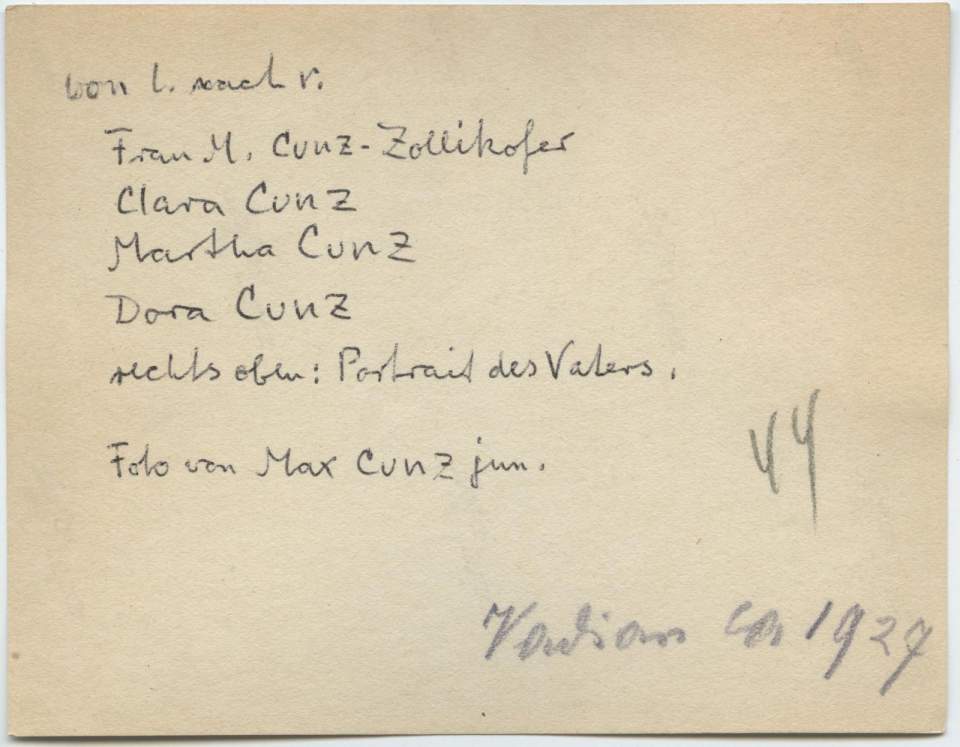 von l. nach r.
Frau M. Cunz-Zollikofer
Clara Cunz
Martha Cunz
Dora Cunz
rechts oben: Portrait des Vaters.
Foto von Max Cunz jun.
44
Vadian ca 1927